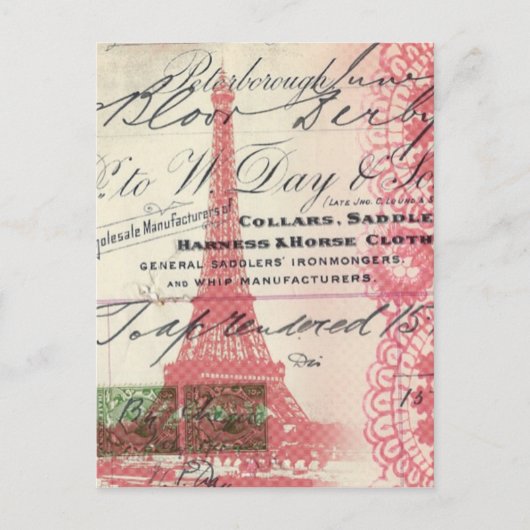 Peterborough, June
Bloor Derby
to W. Day & So
(LATE JNO. C. LOUND & S
olesale Manufacturers of
COLLARS, SADDLE
HARNESS & HORSE CLOTH
GENERAL SADDLERS' IRONMONGERS,
AND WHIP MANUFACTURERS.
rendered 15
Dis
13
By